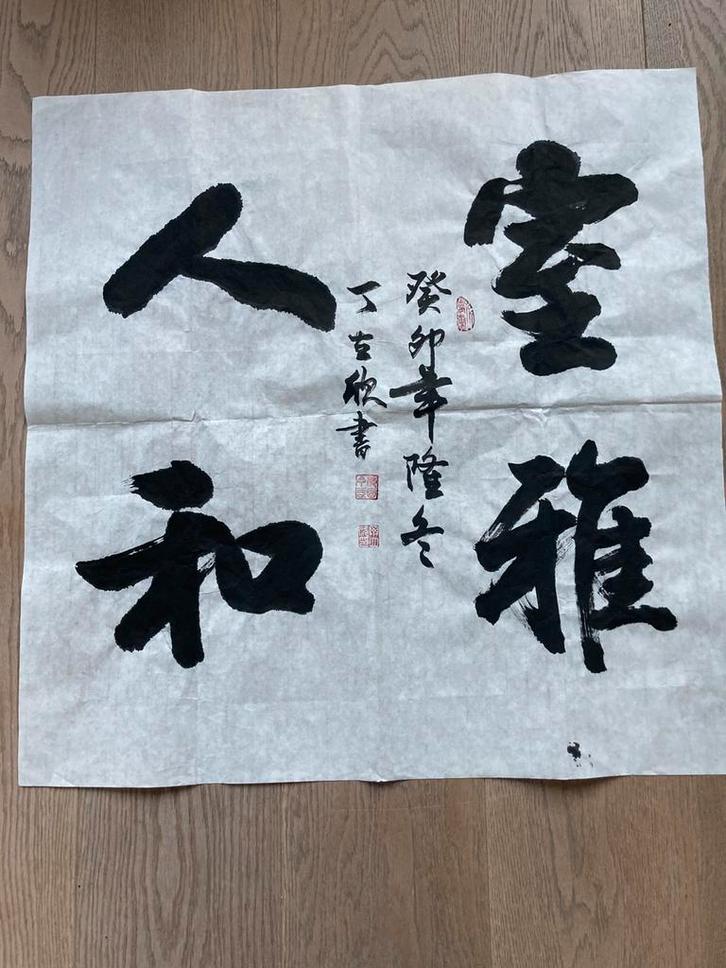 室雅
人和
癸卯年隆冬
丁古欣書